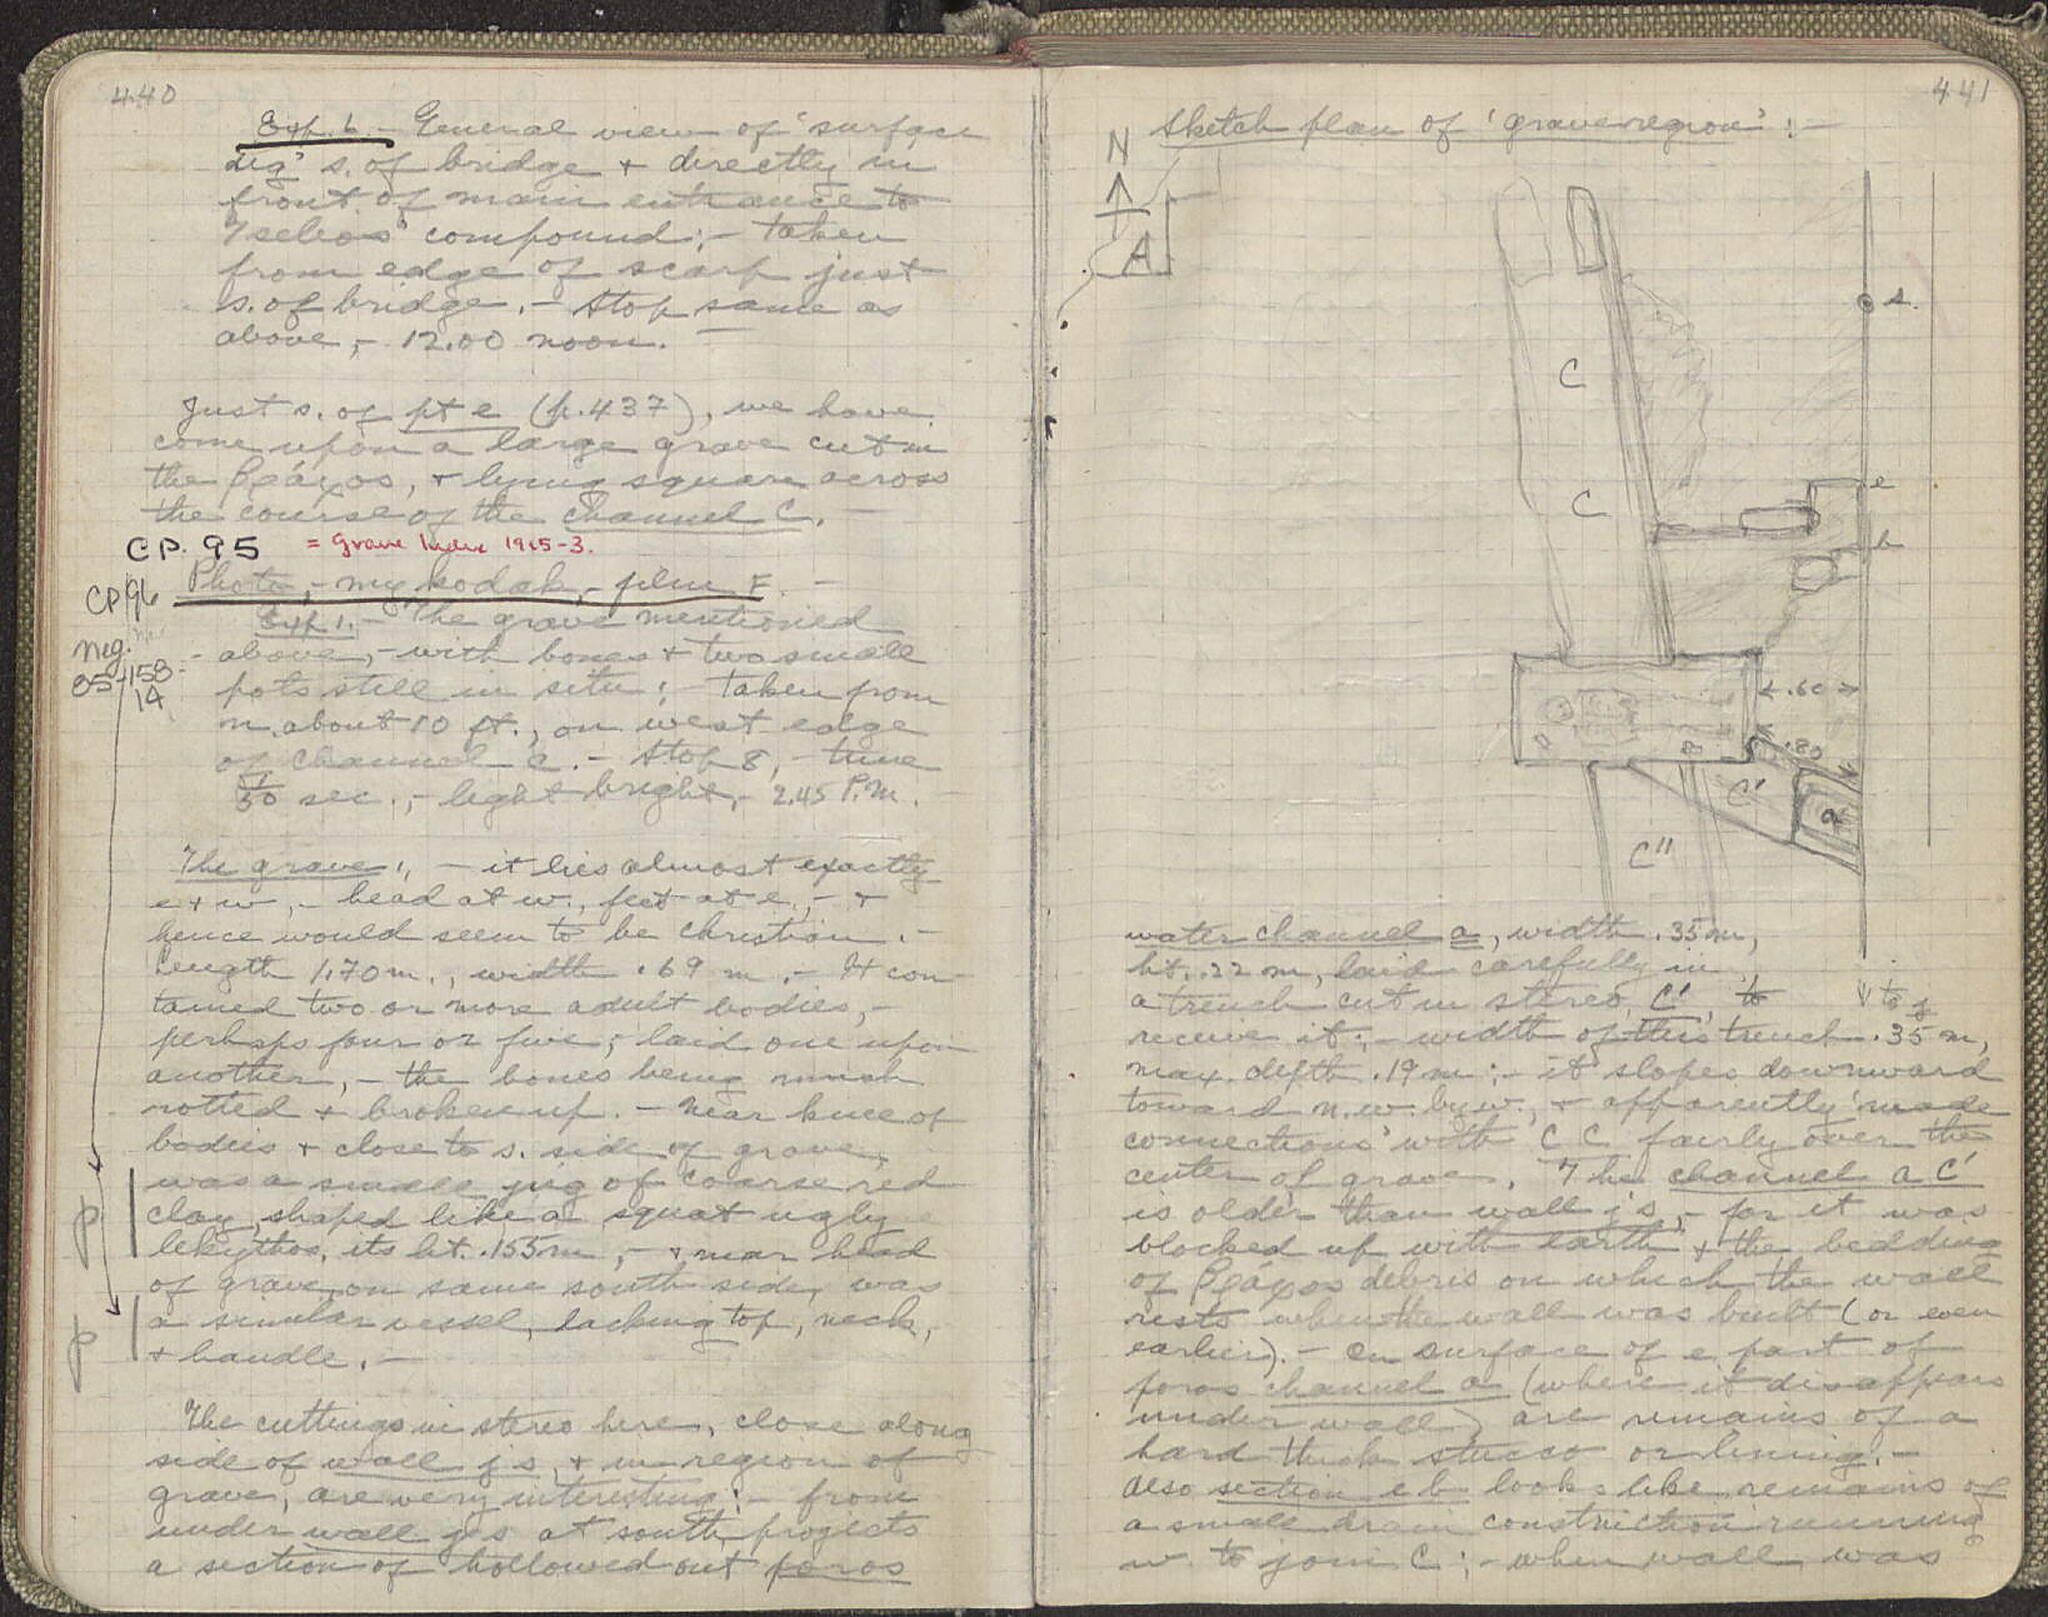 440
Exp. 6. – General view of 'surface
dig' s. of bridge + directly in
front of main entrance to
Tselios' compound; – taken
from edge of scarp just
s. of bridge. – Stop same as
above, – 12.00 noon. –
Just s. of pt e (p. 437), we have
come upon a large grave cut in
the βράχος, + lying square across
the course of the channel C. –
C.P. 95 = Grave Index 1925-3.
Photo, – my kodak, – film F. –
CP 96
Neg.
85-158-
14
Exp 1. – The grave mentioned
above, – with bones + two small
pots still in situ; – taken from
n. about 10 ft., on west edge
of channel C. – Stop 8, – time
1/50 sec., – light bright, – 2.45 P.M.
The grave; – it lies almost exactly
e + w, – head at w., feet at e., – +
hence would seem to be Christian. –
Length 1.70 m., width .69 m. – It con-
tained two or more adult bodies, –
perhaps four or five, – laid one upon
another, – the bones being much
rotted + broken up. – Near knee of
bodies + close to s. side of grave,
was a small jug of coarse red
P
clay, shaped like a squat ugly
lekythos, its ht. .155 m, – + near head
of grave, on same south side, was
P
a similar vessel, lacking top, neck,
+ handle. –
The cuttings in stereo here, close along
side of wall j s, + in region of
grave, are very interesting: – from
under wall j s at south projects
a section of hollowed out poros
441
Sketch plan of 'grave region': –
N
A
s.
C
C
e
b
.60
.80
C'
a
C''
to j
water channel a, width .35 m,
ht. .22 m, laid carefully in
a trench cut in stereo, C', to
receive it; – width of this trench .35 m,
max. depth .19 m; – it slopes downward
toward n.w. by w., + apparently 'made
connections' with C C fairly over the
center of grave. The channel a C'
is older than wall j s, – for it was
blocked up with earth + the bedding
of βράχος debris on which the wall
rests when the wall was built (or even
earlier). – On surface of e. part of
poros channel a (where it disappears
under wall) are remains of a
hard thick stucco or lining. –
Also section e b looks like remains of
a small drain construction running
w. to join C; – when wall was